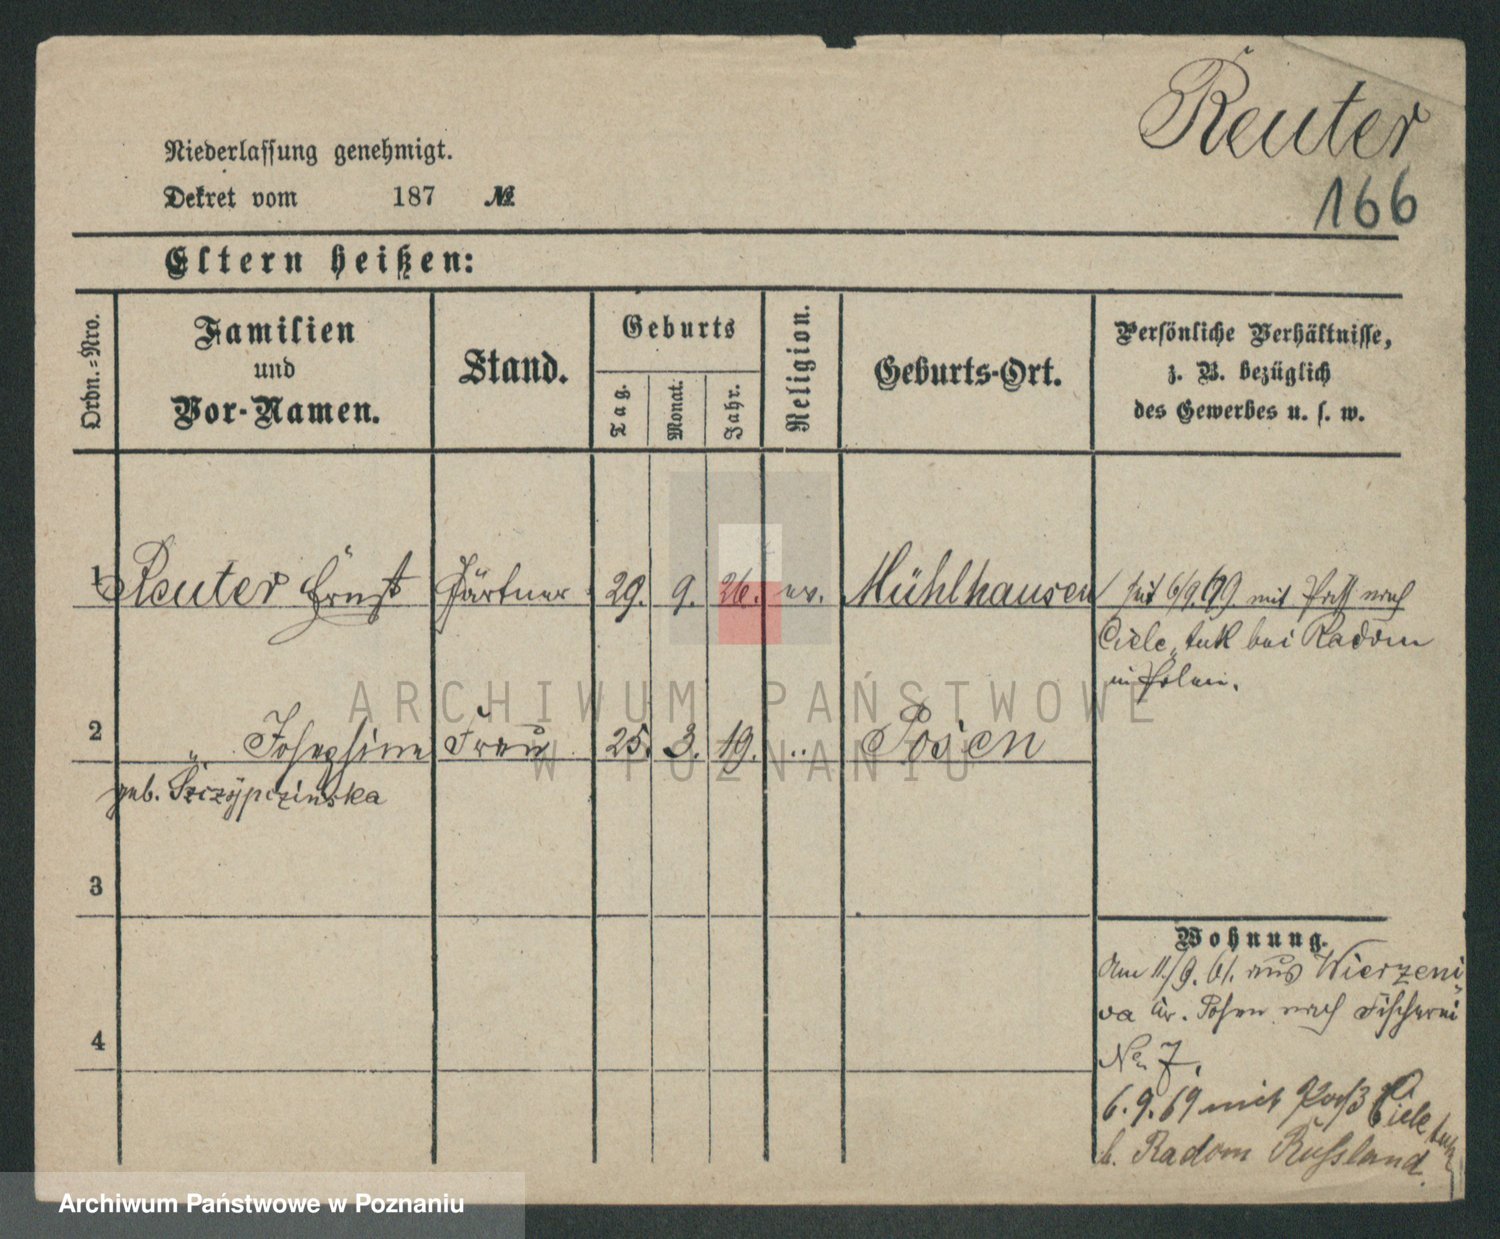 Reuter
166
Niederlassung genehmigt.
Dekret vom 187 №
Eltern heißen:
Ordn.=Nro.
Familien
und
Vor-Namen.
Stand.
Geburts
Tag.
Monat.
Jahr.
Religion.
Geburts-Ort.
Persönliche Verhältnisse,
z. B. bezüglich
des Gewerbes u. s. w.
1 Reuter Ernst Gärtner 29. 9. 26. ev. Mühlhausen
6/9. 69. mit Paß nach
Ciele, bei Radom
in Polen.
2 " Josephine Frau 25. 3. 19. " Posen
geb. Szczypczinska
3
4
Wohnung.
Am 11./9. 61. aus Wierzeni-
ca Kr. Posen nach Fischerei
No 7.
6. 9. 69 mit Paß Ciele
b. Radom Russland.
ARCHIWUM PAŃSTWOWE
W POZNANIU
Archiwum Państwowe w Poznaniu